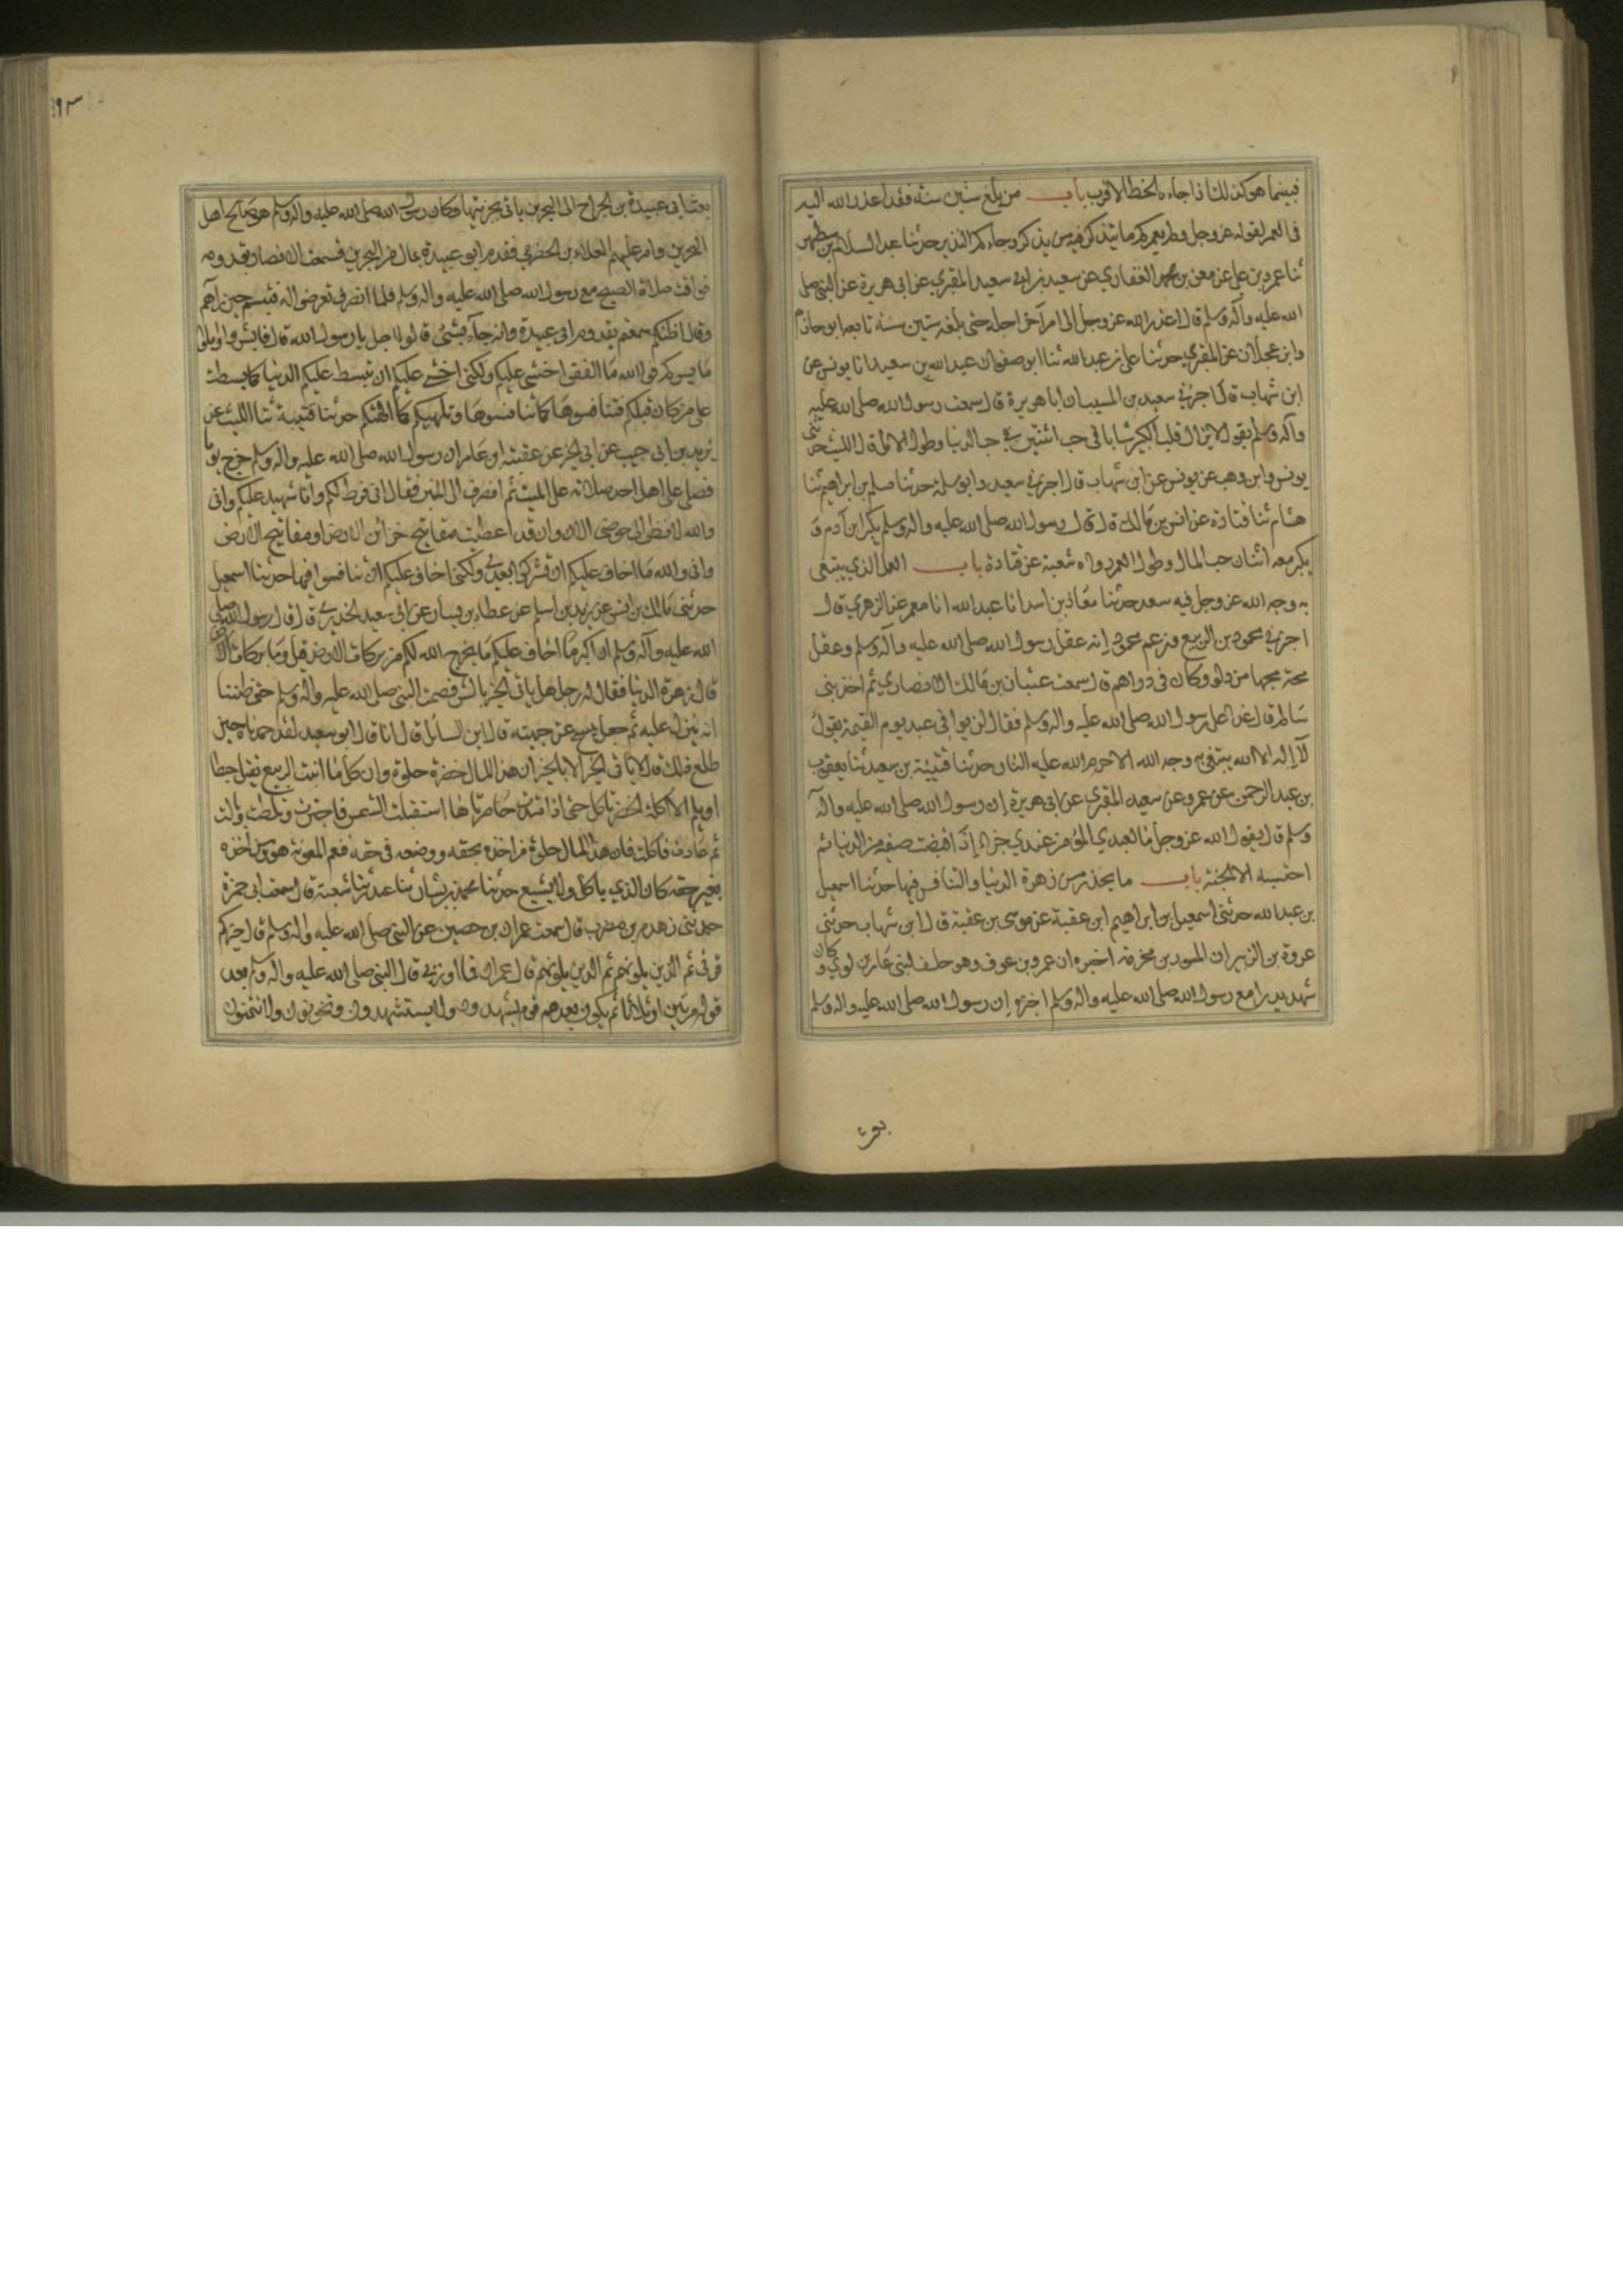 فبينما هو كذلك اذا جاءه الخط الاقرب باب من بلغ ستين سنة فقد اعذر الله اليه
فى العمر لقوله عز وجل اولم نعمركم ما يتذكر فيه من يذكر وجاءكم النذير حدثنا عبد السلام بن مطهر
ثنا عمر بن على عن معن بن محمد الغفاري عن سعيد بن ابي سعيد المقبري عن ابى هريرة عن النبى صلى
الله عليه وآله وسلم قال اعذر الله عز وجل الى امرئ اخر اجله حتى بلغه ستين سنة تابعه ابو حازم
وابن عجلان عن المقبري حدثنا على بن عبد الله ثنا ابو صفوان عبد الله بن سعيد انا يونس عن
ابن شهاب قال اخبرني سعيد بن المسيب ان ابا هريرة قال سمعت رسول الله صلى الله عليه
وآله وسلم يقول لا يزال قلب الكبير شابا فى حب اثنتين في حب الدنيا وطول الامل قال الليث حدثنى
يونس وابن وهب عن يونس عن ابن شهاب قال اخبرني سعيد وابو سلمة حدثنا مسلم بن ابراهيم ثنا
هشام ثنا قتادة عن انس بن مالك قال قال رسول الله صلى الله عليه واله وسلم يكبر ابن آدم و
يكبر معه اثنان حب المال وطول العمر رواه شعبة عن قتادة باب العمل الذي يبتغى
به وجه الله عز وجل فيه سعد حدثنا معاذ بن اسد انا عبد الله انا معمر عن الزهري قال
اخبرني محمود بن الربيع وزعم محمود انه عقل رسول الله صلى الله عليه وآله وسلم وعقل
مجة مجها من دلو وكان فى دارهم قال سمعت عتبان بن مالك الانصاري ثم اخذ بنى
سالم قال غدا على رسول الله صلى الله عليه واله وسلم فقال لن يوافى عبد يوم القيمة يقول
لا اله الا الله يبتغى به وجه الله الا حرم الله عليه النار حدثنا قتيبة بن سعيد ثنا يعقوب
بن عبد الرحمن عن عمرو عن سعيد المقبري عن ابى هريرة ان رسول الله صلى الله عليه واله
وسلم قال يقول الله عز وجل ما لعبدي المؤمن عندي جزاء اذا قبضت صفيه من الدنيا ثم
احتسبه الا الجنة باب ما يحذر من زهرة الدنيا والتنافس فيها حدثنا اسمعيل
بن عبد الله حدثنى اسمعيل بن ابراهيم ابن عقبة عن موسى بن عقبة قال ابن شهاب حدثنى
عروة بن الزبير ان المسور بن مخرمة اخبره ان عمرو بن عوف وهو حليف لبنى عامر بن لوي وكان
شهد بدرا مع رسول الله صلى الله عليه واله وسلم اخبره ان رسول الله صلى الله عليه واله وسلم
بعث
٩٣
بعث ابا عبيدة بن الجراح الى البحرين ياتى بجزيتها وكان رسول الله صلى الله عليه واله وسلم هو صالح اهل
البحرين وامر عليهم العلاء بن الحضرمي فقدم ابو عبيدة بمال من البحرين فسمعت الانصار بقدومه
فوافت صلاة الصبح مع رسول الله صلى الله عليه واله وسلم فلما انصرف تعرضوا له فتبسم حين رآهم
وقال اظنكم سمعتم بقدوم ابى عبيدة وانه جاء بشئ قالوا اجل يا رسول الله قال فابشروا واملوا
ما يسركم فوالله ما الفقر اخشى عليكم ولكنى اخشى عليكم ان تبسط عليكم الدنيا كما بسطت
على من كان قبلكم فتنافسوها كما تنافسوها وتلهيكم كما الهتهم حدثنا قتيبة ثنا الليث عن
يزيد بن ابى حبيب عن ابى الخير عن عقبة بن عامر ان رسول الله صلى الله عليه واله وسلم خرج يوما
فصلى على اهل احد صلاته على الميت ثم انصرف الى المنبر فقال انى فرط لكم وانا شهيد عليكم وانى
والله لانظر الى حوضى الان وانى قد اعطيت مفاتيح خزائن الارض او مفاتيح الارض
وانى والله ما اخاف عليكم ان تشركوا بعدي ولكنى اخاف عليكم ان تنافسوا فيها حدثنا اسمعيل
حدثنى مالك بن انس عن زيد بن اسلم عن عطاء بن يسار عن ابى سعيد الخدري قال قال رسول الله صلى
الله عليه وآله وسلم ان اكبر ما اخاف عليكم ما يخرج الله لكم من بركات الارض قيل وما بركات الارض
قال زهرة الدنيا فقال له رجل هل ياتى الخير بالشر فصمت النبى صلى الله عليه واله وسلم حتى ظننا
انه ينزل عليه ثم جعل يمسح عن جبينه قال اين السائل قال انا قال ابو سعيد لقد حمدناه حين
طلع ذلك قال لا ياتى الخير الا بالخير ان هذا المال خضرة حلوة وان كل ما انبت الربيع يقتل حبطا
او يلم الا آكلة الخضر تاكل حتى اذا امتدت خاصرتاها استقبلت الشمس فاجترت وثلطت وبالت
ثم عادت فاكلت فان هذا المال حلوة من اخذه بحقه ووضعه فى حقه فنعم المعونة هو ومن اخذه
بغير حقه كان الذي ياكل ولا يشبع حدثنا محمد بن بشار ثنا غندر ثنا شعبة قال سمعت ابى جمرة
حدثنى زهدم بن مضرب قال سمعت عمران بن حصين عن النبى صلى الله عليه واله وسلم قال خيركم
قرنى ثم الذين يلونهم ثم الذين يلونهم قال عمران فما ادري قال النبى صلى الله عليه واله وسلم بعد
قوله مرتين او ثلاثا ثم يكون بعدهم قوم يشهدون ولا يستشهدون ويخونون ولا يؤتمنون